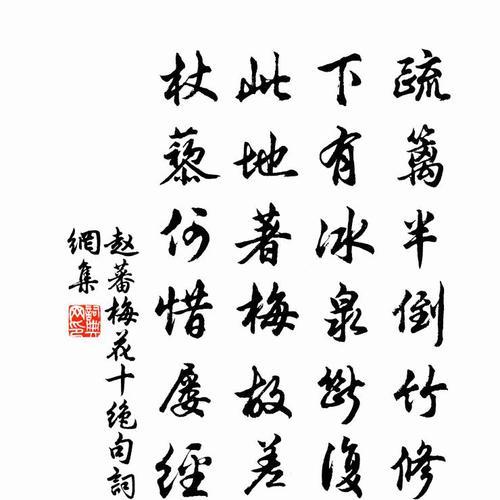 疏篱半倒竹修
下有冰泉断復
此地著梅故差
杖藜何惜屡經
赵蕃梅花十绝句詞
網集